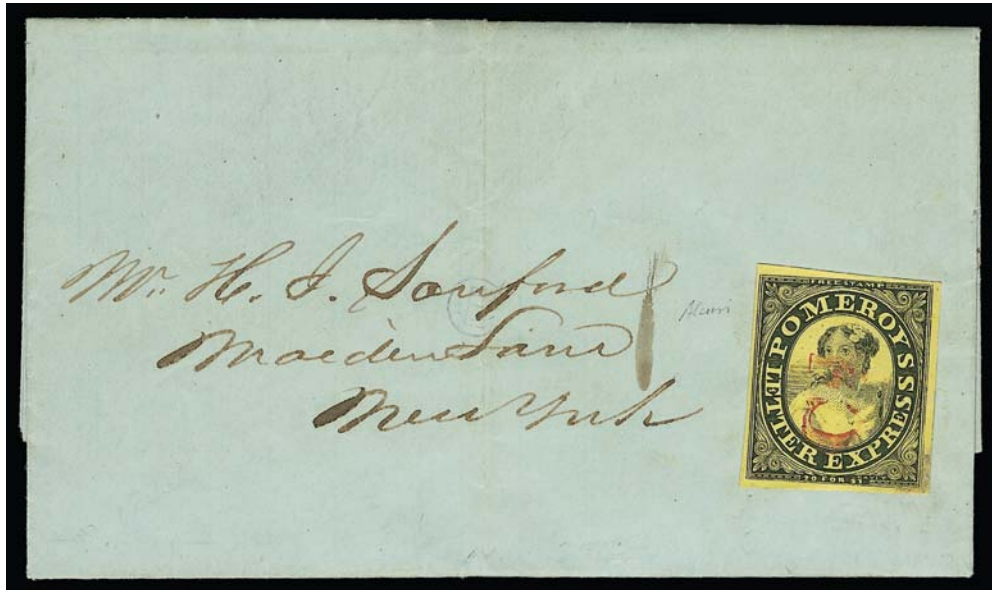 Mr. H. J. Sanford
Maiden Lane
New York
FREE STAMP
POMEROYS
LETTER EXPRESS
20 FOR $1